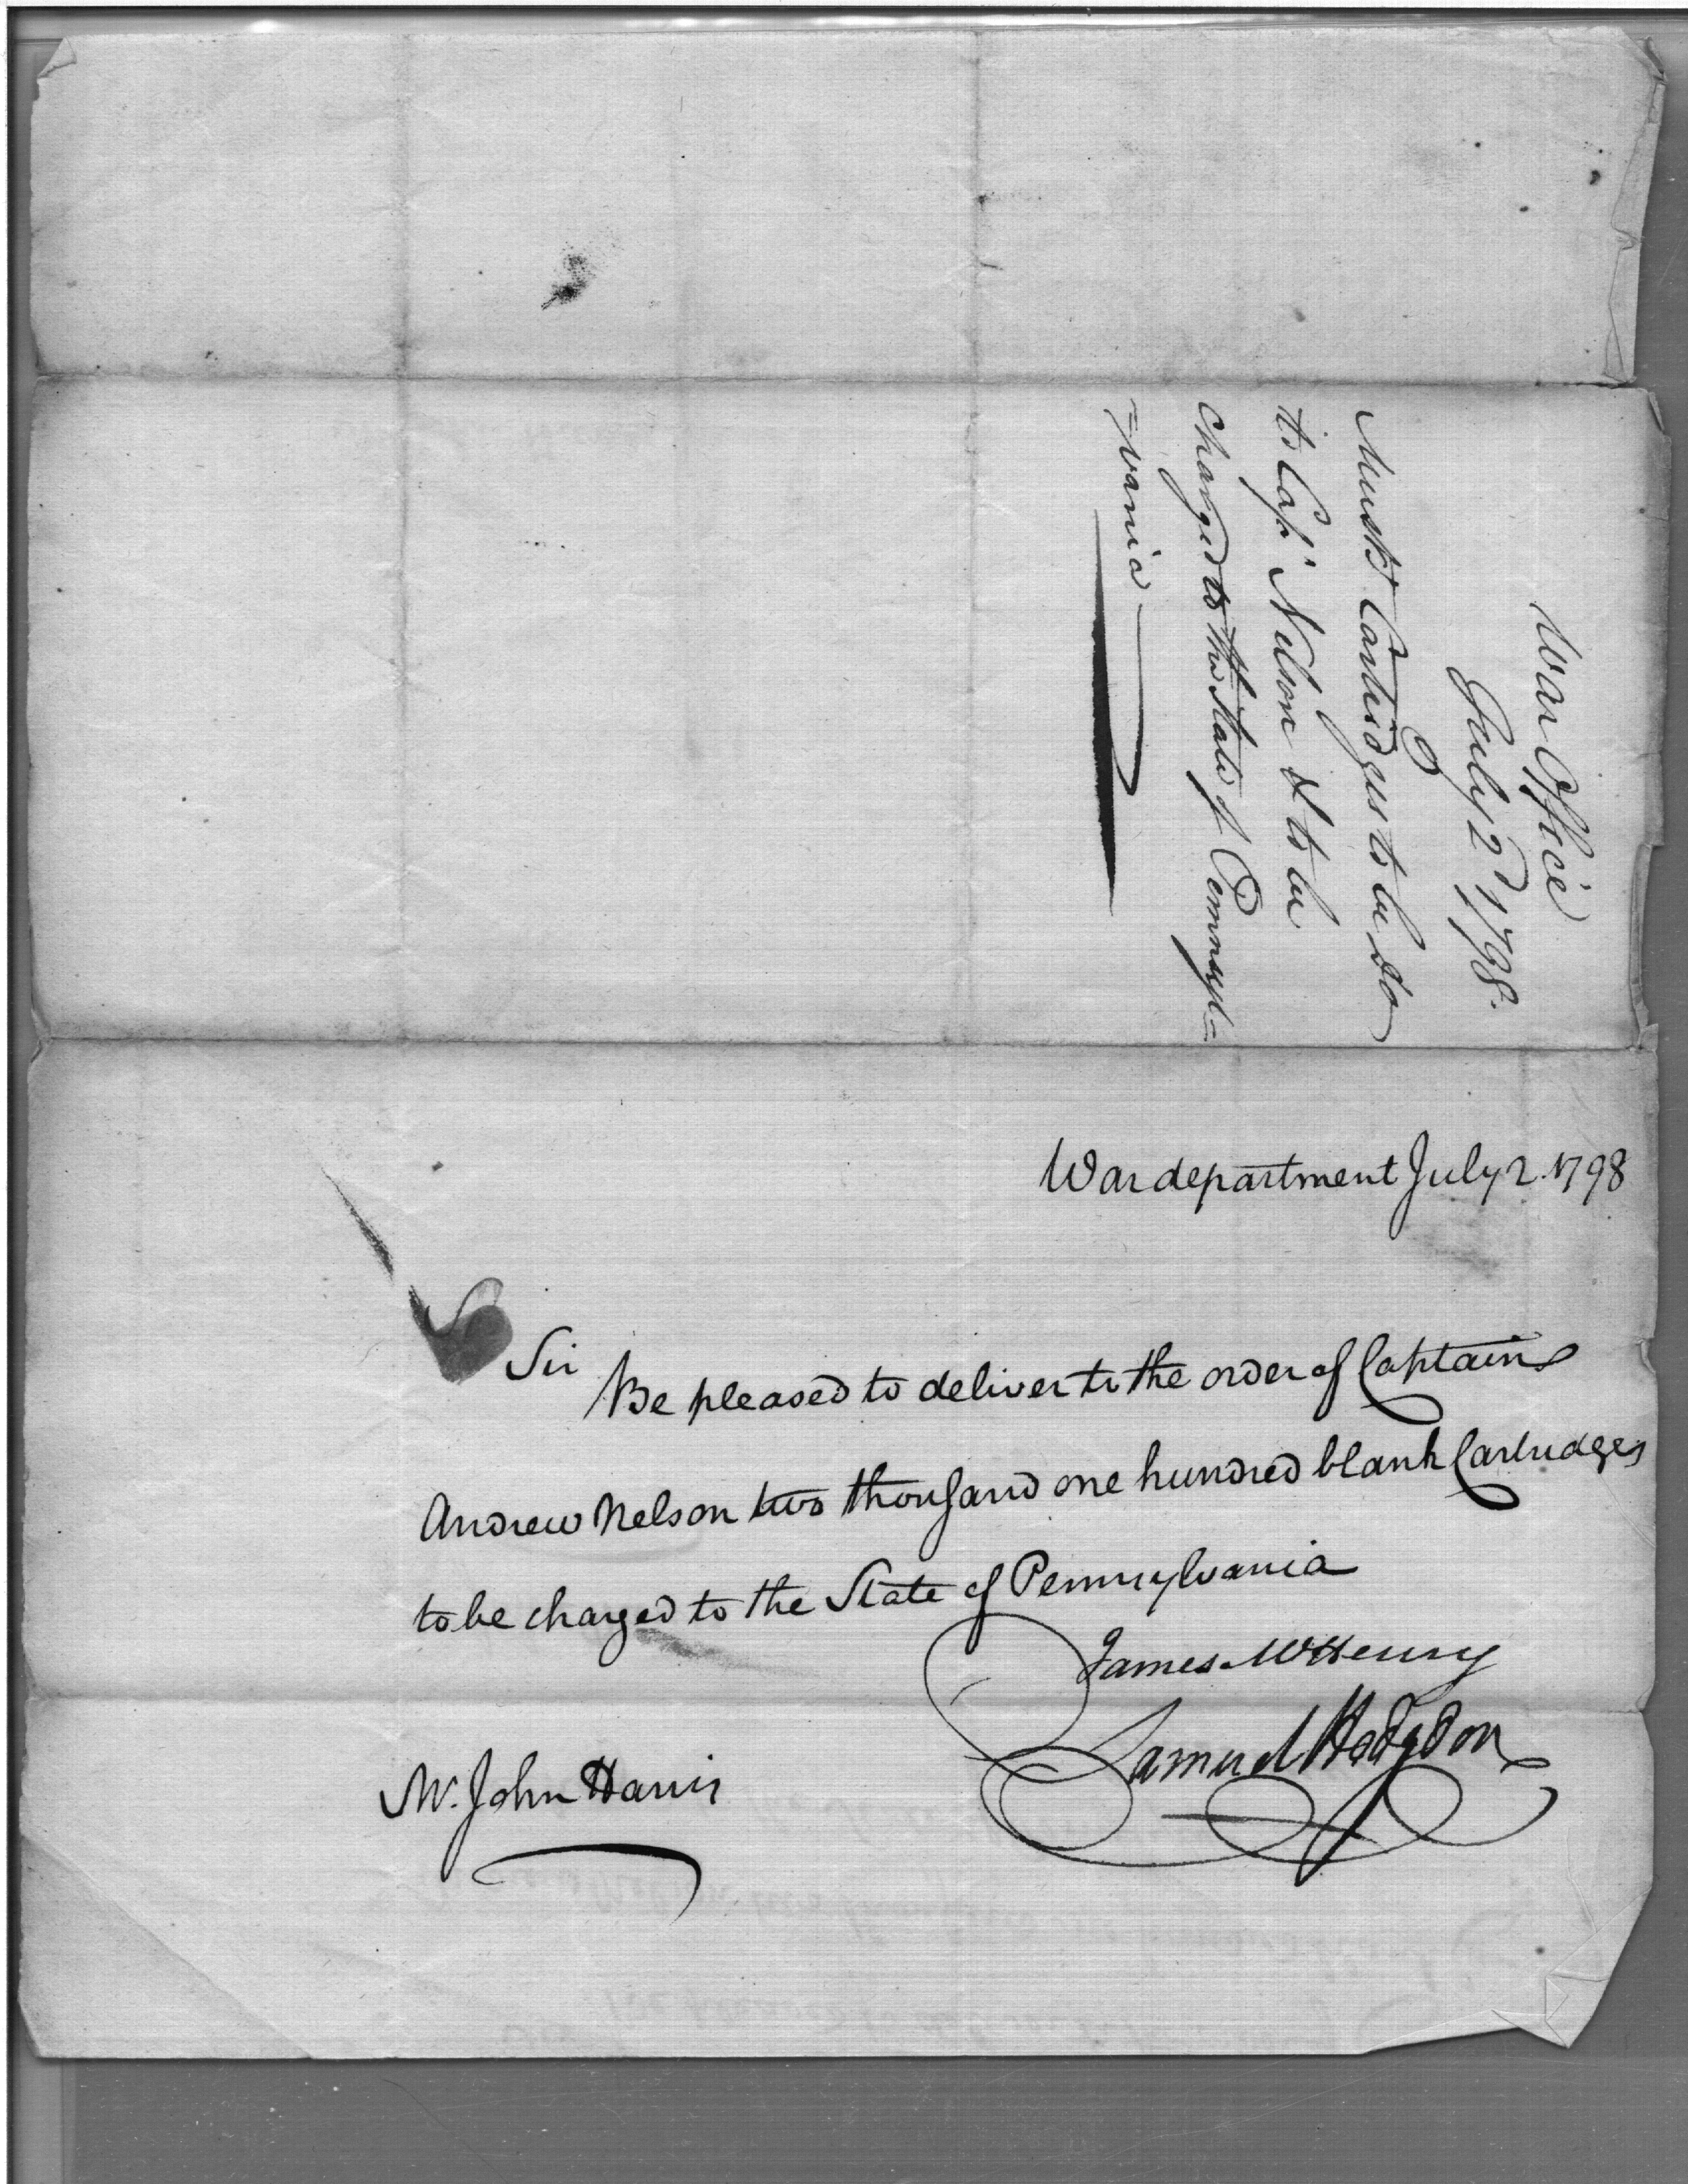 War Office
July 2d 1798.
Muskt Cartridges to be do
to Capt Nelson & to be
Charged to the State of Pennsyl=
=vania
War department July 2. 1798
Sir
Be pleased to deliver to the order of Captain
Andrew Nelson two thousand one hundred blank Cartridges
to be charged to the State of Pennsylvania
James McHenry
Samuel Hodgdon
Mr. John Harris